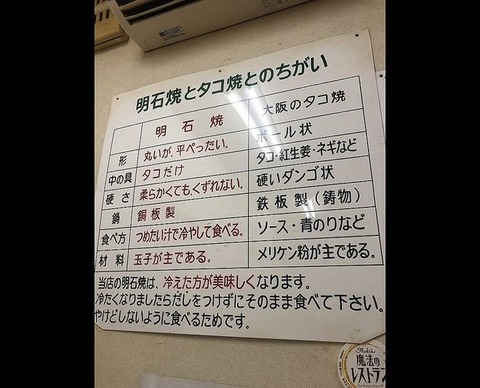 明石焼とタコ焼とのちがい
明石焼 大阪のタコ焼
形 丸いが、平べったい。 ボール状
中の具 タコだけ タコ・紅生姜・ネギなど
硬さ 柔らかくても、くずれない。 硬いダンゴ状
鍋 銅板製 鉄板製(鋳物)
食べ方 つめたい汁で冷やして食べる。 ソース・青のりなど
材料 玉子が主である。 メリケン粉が主である。
当店の明石焼は、冷えた方が美味しくなります。
冷たくなりましたらだしをつけずにそのまま食べて下さい。
やけどしないように食べるためです。
魔法の
レストラン